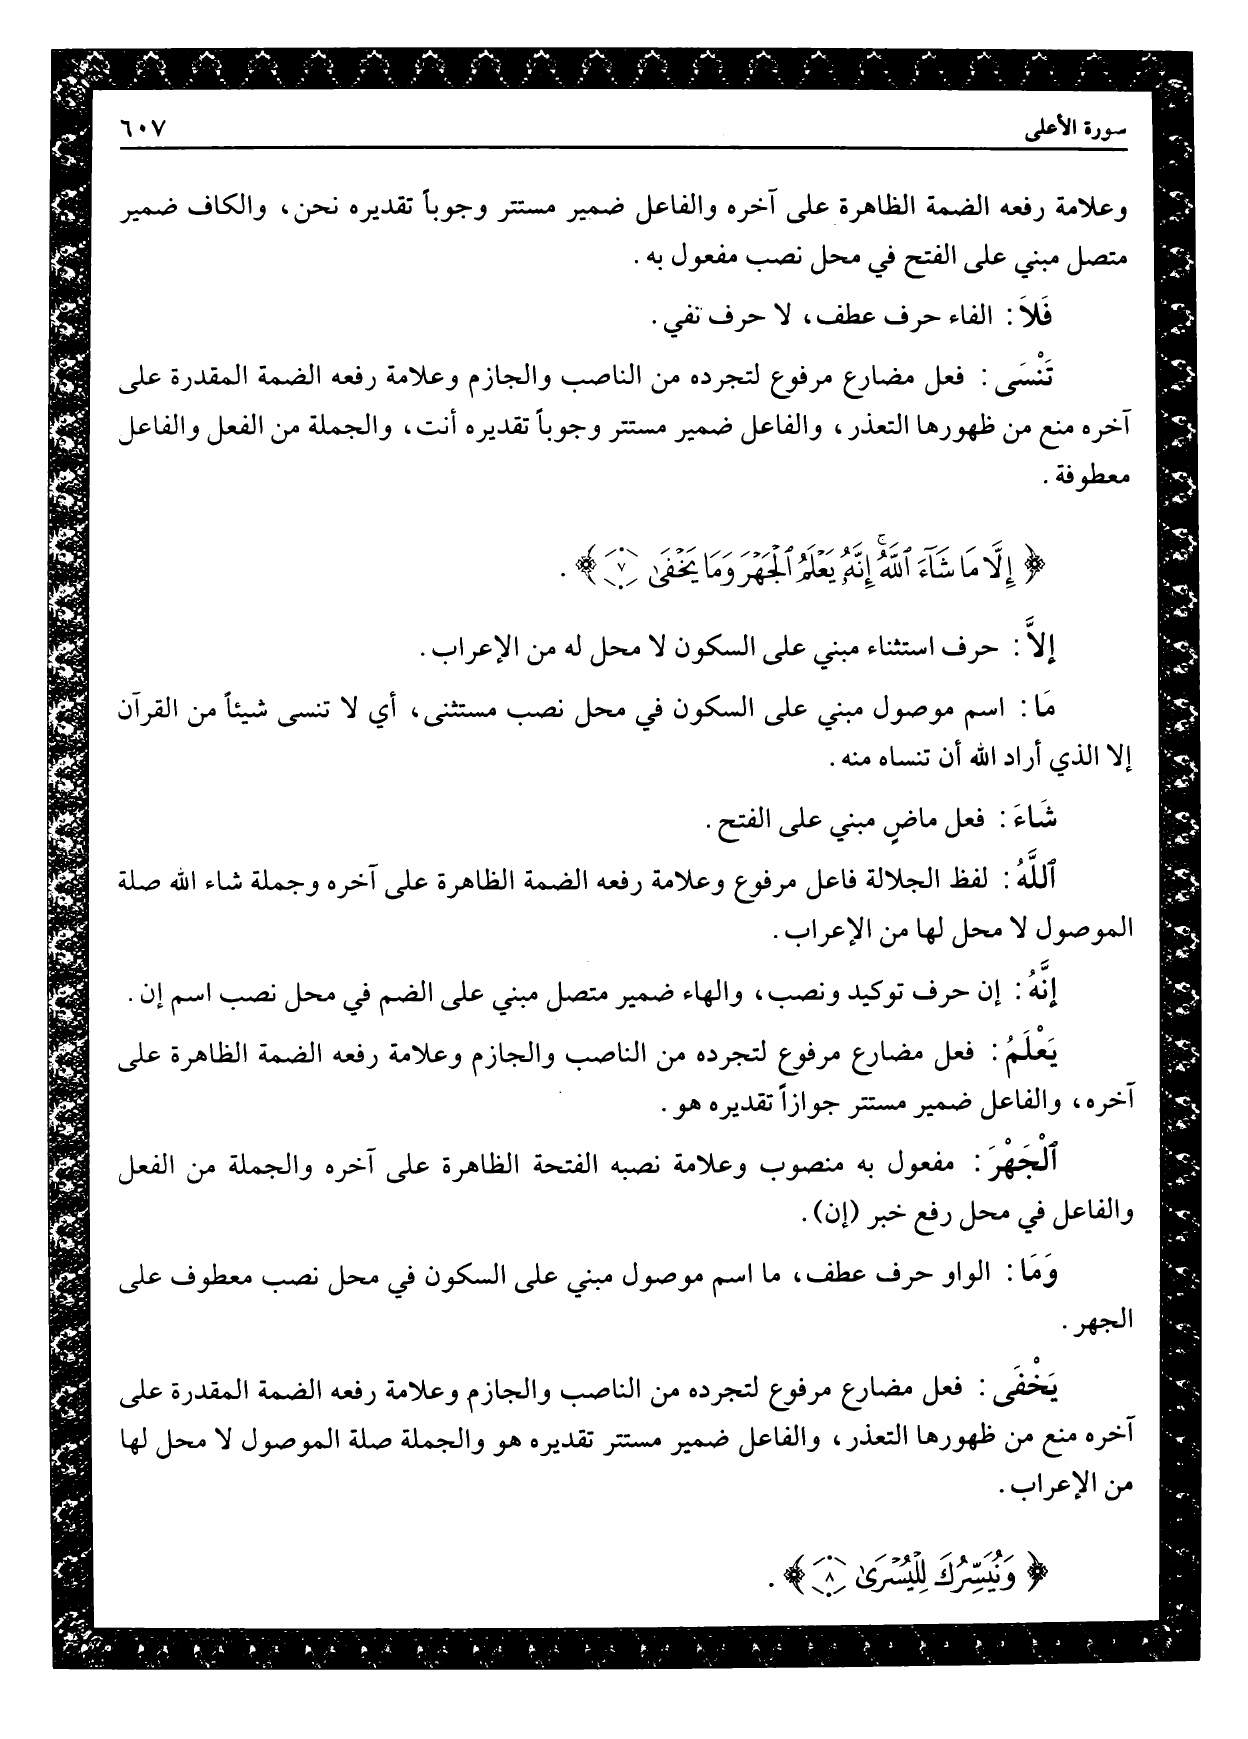 سورة الأعلى ٦٠٧
وعلامة رفعه الضمة الظاهرة على آخره والفاعل ضمير مستتر وجوباً تقديره نحن، والكاف ضمير
متصل مبني على الفتح في محل نصب مفعول به.
فَلاَ: الفاء حرف عطف، لا حرف نفي.
تَنْسَى: فعل مضارع مرفوع لتجرده من الناصب والجازم وعلامة رفعه الضمة المقدرة على
آخره منع من ظهورها التعذر، والفاعل ضمير مستتر وجوباً تقديره أنت، والجملة من الفعل والفاعل
معطوفة.
﴿ إِلَّا مَا شَآءَ ٱللَّهُۚ إِنَّهُۥ يَعْلَمُ ٱلْجَهْرَ وَمَا يَخْفَىٰ ٧ ﴾.
إلاَّ: حرف استثناء مبني على السكون لا محل له من الإعراب.
مَا: اسم موصول مبني على السكون في محل نصب مستثنى، أي لا تنسى شيئاً من القرآن
إلا الذي أراد الله أن تنساه منه.
شَاءَ: فعل ماضٍ مبني على الفتح.
ٱللَّهُ: لفظ الجلالة فاعل مرفوع وعلامة رفعه الضمة الظاهرة على آخره وجملة شاء الله صلة
الموصول لا محل لها من الإعراب.
إنَّهُ: إن حرف توكيد ونصب، والهاء ضمير متصل مبني على الضم في محل نصب اسم إن.
يَعْلَمُ: فعل مضارع مرفوع لتجرده من الناصب والجازم وعلامة رفعه الضمة الظاهرة على
آخره، والفاعل ضمير مستتر جوازاً تقديره هو.
ٱلْجَهْرَ: مفعول به منصوب وعلامة نصبه الفتحة الظاهرة على آخره والجملة من الفعل
والفاعل في محل رفع خبر (إن).
وَمَا: الواو حرف عطف، ما اسم موصول مبني على السكون في محل نصب معطوف على
الجهر.
يَخْفَى: فعل مضارع مرفوع لتجرده من الناصب والجازم وعلامة رفعه الضمة المقدرة على
آخره منع من ظهورها التعذر، والفاعل ضمير مستتر تقديره هو والجملة صلة الموصول لا محل لها
من الإعراب.
﴿ وَنُيَسِّرُكَ لِلْيُسْرَىٰ ٨ ﴾.